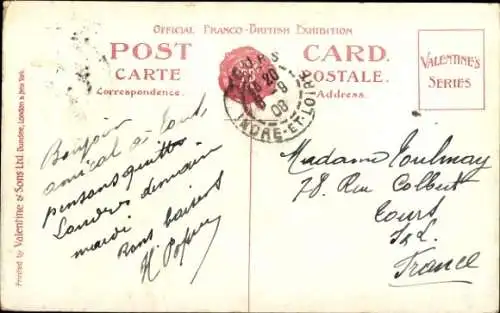 OFFICIAL FRANCO-BRITISH EXHIBITION
POST CARD.
CARTE POSTALE.
Correspondence.
Address.
VALENTINE'S
SERIES
Printed by Valentine & Sons Ltd. Dundee, London & New York.
TOURS
20
8 08
INDRE-ET-LOIRE
Bonjour
amical à tous,
pensons quitter
Londres demain
mardi
Bons baisers
H.
Madame
78 Rue Colbert
Tours
I & L.
France